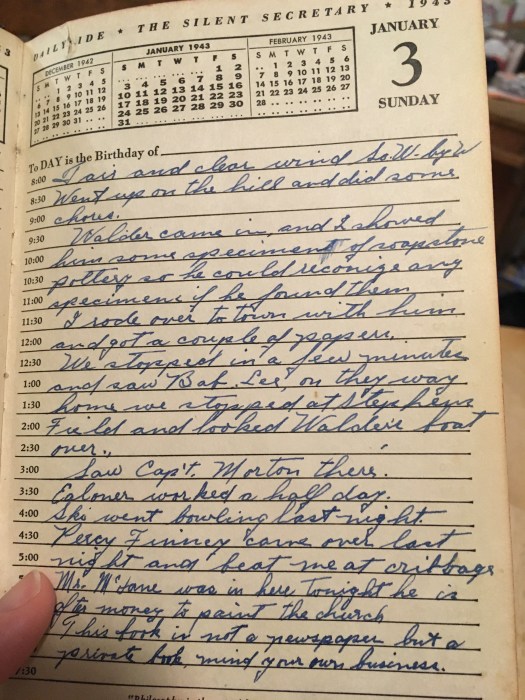 DAILY AIDE * THE SILENT SECRETARY * 1943
DECEMBER 1942
S M T W T F S
. . . . 1 2 3 4 5
6 7 8 9 10 11 12
13 14 15 16 17 18 19
20 21 22 23 24 25 26
27 28 29 30 31 . . . .
JANUARY 1943
S M T W T F S
. . . . . . . . . . 1 2
3 4 5 6 7 8 9
10 11 12 13 14 15 16
17 18 19 20 21 22 23
24 25 26 27 28 29 30
31 . . . . . . . . . . . .
FEBRUARY 1943
S M T W T F S
. . 1 2 3 4 5 6
7 8 9 10 11 12 13
14 15 16 17 18 19 20
21 22 23 24 25 26 27
28 . . . . . . . . . . . .
JANUARY
3
SUNDAY
To DAY is the Birthday of
8:00 Fair and clear wind So.W. by W
8:30 Went up on the hill and did some
9:00 chores.
9:30 Walder came in, and I showed
10:00 him some speciment of soapstone
10:30 pottery so he could reconize any
11:00 speciment if he found them
11:30 I rode over to town with him
12:00 and got a couple of papers.
12:30 We stopped in a few minutes
1:00 and saw "Bab. Lee", on they way
1:30 home we stopped at Stephens
2:00 Field and looked Walder's boat
2:30 over.,
3:00 Saw Cap't. Morton there.
3:30 worked a half day.
4:00 Ski went bowling last night.
4:30 Percy Finney came over last
5:00 night and beat me at cribbage
Mr. was in here tonight he is
after money to paint the church
This book is not a newspaper but a
7:30 private book, mind your own business.